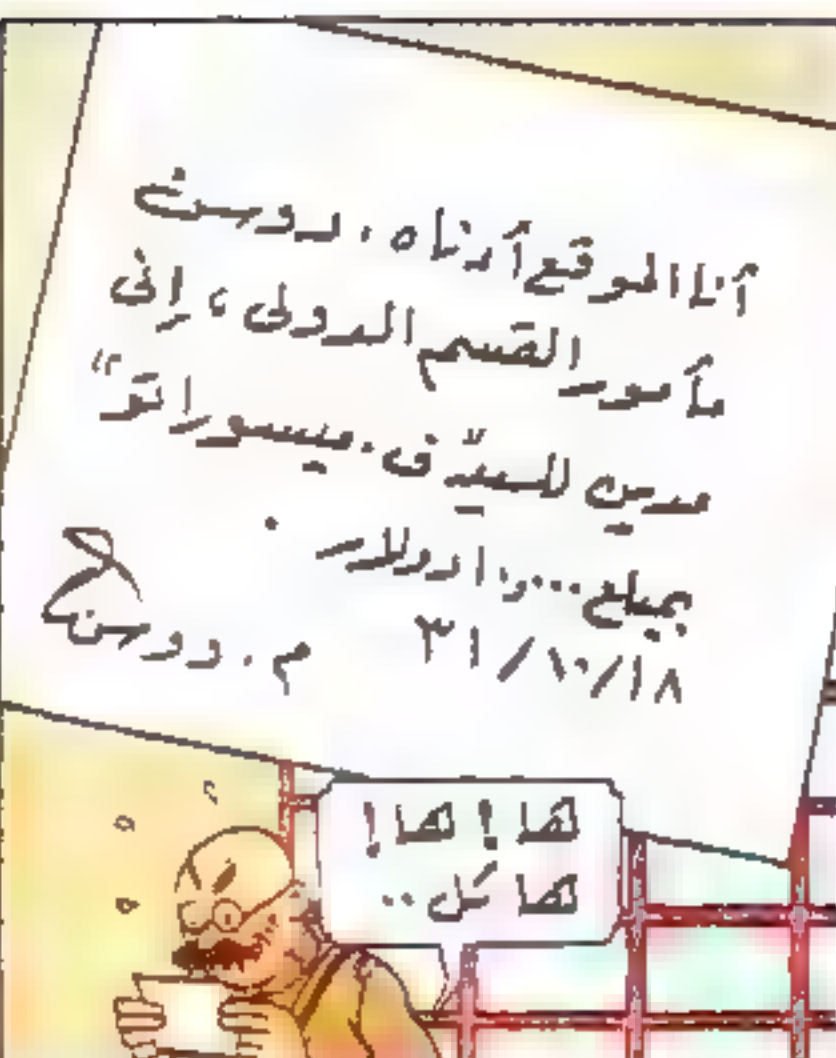 أنا الموقع أدناه، دوسن
مأمور القسم الدولى، إنى
مدين للسيّد ف. ميسوراتو"
بمبلغ ١٠,٠٠٠ دولار.
٣١/١٠/١٨
م. دوسن
ها! ها!
ها كل..